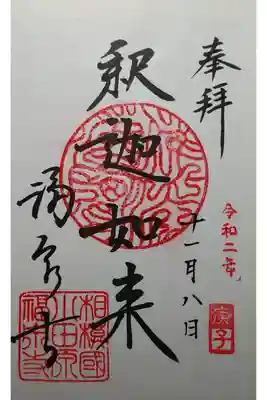 奉拝
令和二年
庚子
十一月八日
釈迦如来
福泉寺
相模國
小田原
福泉寺